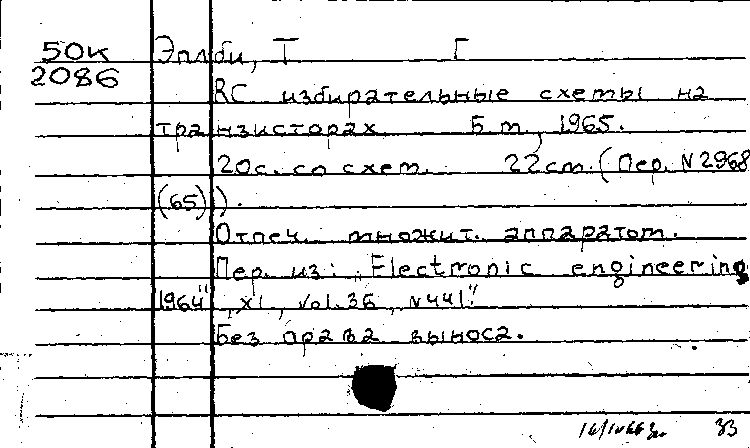 50К Эплби, Т Г
2086
RC избирательные схемы на
транзисторах. Б.m., 1965.
20с. со схем. 22cm. (Пер. N2968
(65)).
Отпеч. множит. аппаратом.
Пер. из: „Electronic engineering
1964", XI, vol. 36, N441."
Без права выноса.
33